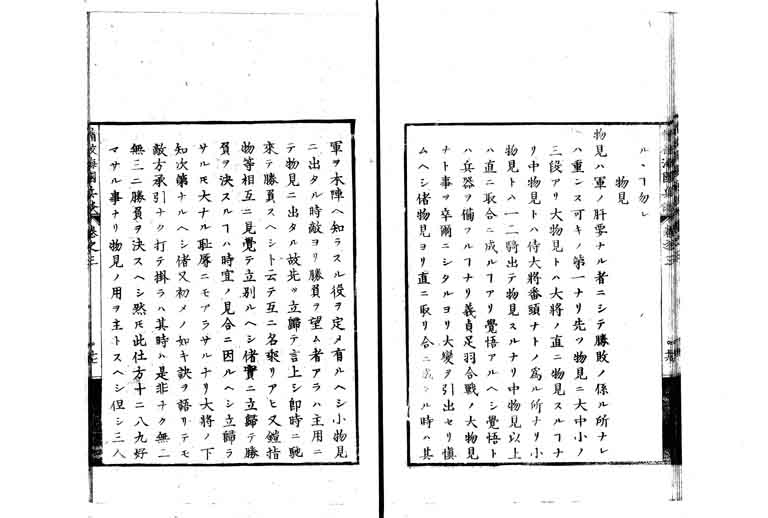 ルヿ勿レ
物見
物見ハ軍ノ肝要ナル者ニシテ勝敗ノ係ル所ナレ
ハ重ンス可キノ第一ナリ先ツ物見ニ大中小ノ
三段アリ大物見トハ大将ノ直ニ物見スルヿナ
リ中物見トハ侍大将番頭ナトノ為ル所ナリ小
物見トハ一二騎出テ物見スルナリ中物見以上
ハ直ニ取合ニ成ルヿアリ覺悟アルヘシ覺悟ト
ハ兵器ヲ備フルヿナリ義貞足羽合戦ノ大物見
ナト事ヲ卒爾ニシタルヨリ大變ヲ引出セリ慎
ムヘシ偖物見ヨリ直ニ取リ合ニ成シル時ハ其
軍ヲ本陣ヘ知ラスル役ヲ定メ有ルヘシ小物見
ニ出タル時敵ヨリ勝負ヲ望ム者アラハ主用ニ
テ物見ニ出タル故先ツ立歸テ言上シ即時ニ馳
來テ勝負スヘシト云テ互ニ名乘リアヒ又鎧指
物等相互ニ見覺テ立別ルヘシ偖實ニ立歸テ勝
負ヲ決スルヿハ時宜ノ見合ニ因ルヘシ立歸ラ
サルモ大ナル恥辱ニモアラサルナリ大将ノ下
知次第ナルヘシ偖又初メノ如キ訣ヲ語リテモ
敵方承引ナク打テ掛ラハ其時ハ是非ナク無二
無三ニ勝負ヲ決スヘシ然モ此仕方十二八九好
マサル事ナリ物見ノ用ヲ主トスヘシ但シ三八
海國兵談
卷之三
海國兵談
卷之三